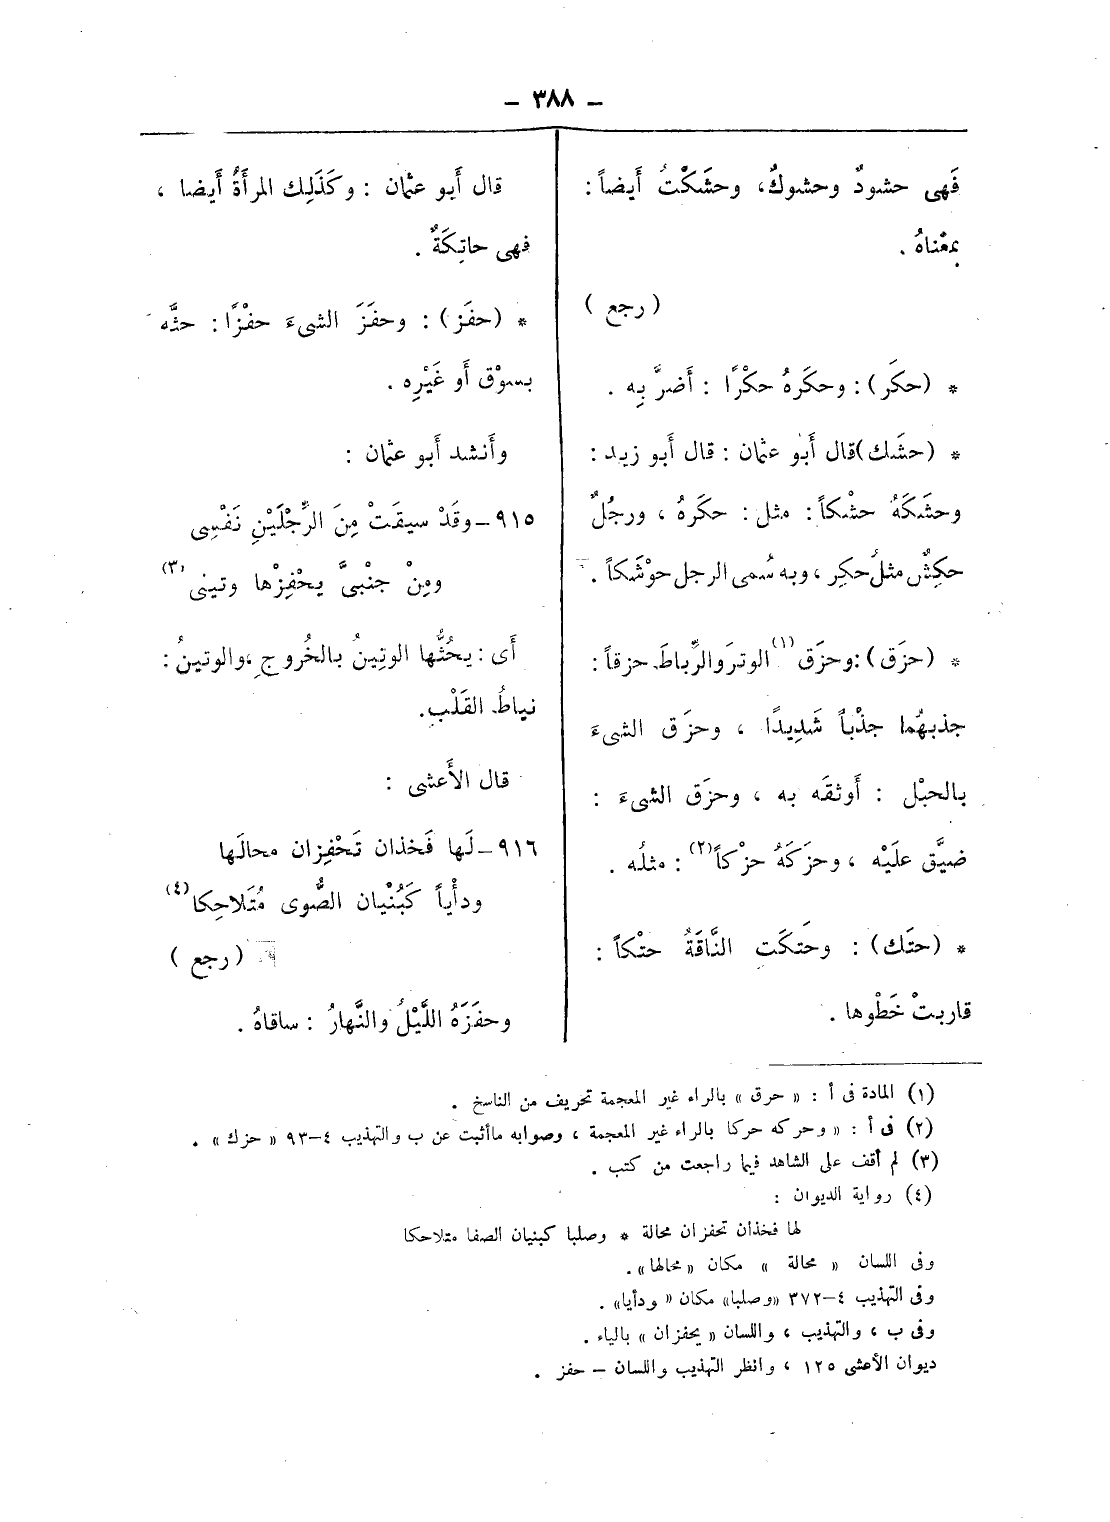 – ٣٨٨ –
فَهى حشودٌ وحشوكٌ، وحشَكْتُ أَيضاً :
بمعْناهُ .
( رجع )
* (حكَر) : وحكَرهُ حكْرًا : أَضرَّ بِه .
* (حشَك) قال أَبو عثمان : قال أَبو زيد :
وحشَكَهُ حشْكاً : مثل : حكَرهُ ، ورجُلٌ
حكِشٌ مثلُ حكِر ، وبه سُمى الرجل حوْشَكاً .
* (حزَق) : وحزَق (١) الوترَ والرِّباطَ حزقاً :
جذبهُما جذْباً شَدِيدًا ، وحزَق الشىءَ
بالحبْل : أَوثقَه به ، وحزَق الشىءَ :
ضيَّق علَيْه ، وحزَكَهُ حزْكاً (٢) : مثلُه .
* (حتَك) : وحَتكَتِ النَّاقَةُ حتْكاً :
قاربتْ خَطْوها .
قال أَبو عثمان : وكَذَلِك المرأَةُ أَيضا ،
فهى حاتِكَةٌ .
* (حفَز) : وحفَزَ الشىءَ حفْزًا : حثَّه
بسوْق أَو غَيْرِه .
وأَنشد أَبو عثمان :
٩١٥ – وقَدْ سيقَتْ مِنَ الرِّجْلَيْنِ نَفْسِى
ومِنْ جنْبىَّ يحْفِزْها وتينى (٣)
أَى : يحُثُّها الوتِينُ بالخُروجِ ، والوتينُ :
نياطُ القَلْبِ .
قال الأَعشى :
٩١٦ – لَها فَخذان تَحْفِزان محالَها
ودأْياً كَبُنْيان الصُّوى مُتَلاحِكا (٤)
( رجع )
وحفَزَهُ اللَّيْلُ والنَّهارُ : ساقاهُ .
(١) المادة فى أ : « حرق » بالراء غير المعجمة تحريف من الناسخ .
(٢) فى أ : « وحركه حركا بالراء غير المعجمة ، وصوابه ماأثبت عن ب والتهذيب ٤–٩٣ « حزك » .
(٣) لم أقف على الشاهد فيما راجعت من كتب .
(٤) رواية الديوان :
لها فخذان تحفزان محالة * وصلبا كبنيان الصفا متلاحكا
وفى اللسان « محالة » مكان « محالها » .
وفى التهذيب ٤–٣٧٢ «وصلبا» مكان « ودأيا» .
وفى ب ، والتهذيب ، واللسان « يحفزان » بالياء .
ديوان الأعشى ١٢٥ ، وانظر التهذيب واللسان – حفز .